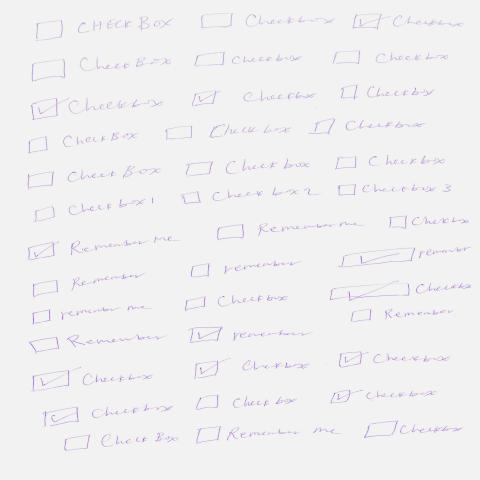 CHECKBOX Checkbox Checkbox
CheckBox Checkbox Checkbox
Checkbox Checkbox Checkbox
CheckBox Checkbox Checkbox
Check Box Check box Checkbox
Checkbox 1 Checkbox 2 Checkbox 3
Remember Me Remember me Checkbox
Remember remember remember
remember me Checkbox Checkbox
Remember remember Remember
Checkbox Checkbox Checkbox
Checkbox Check box Checkbox
Check Box Remember me Checkbox